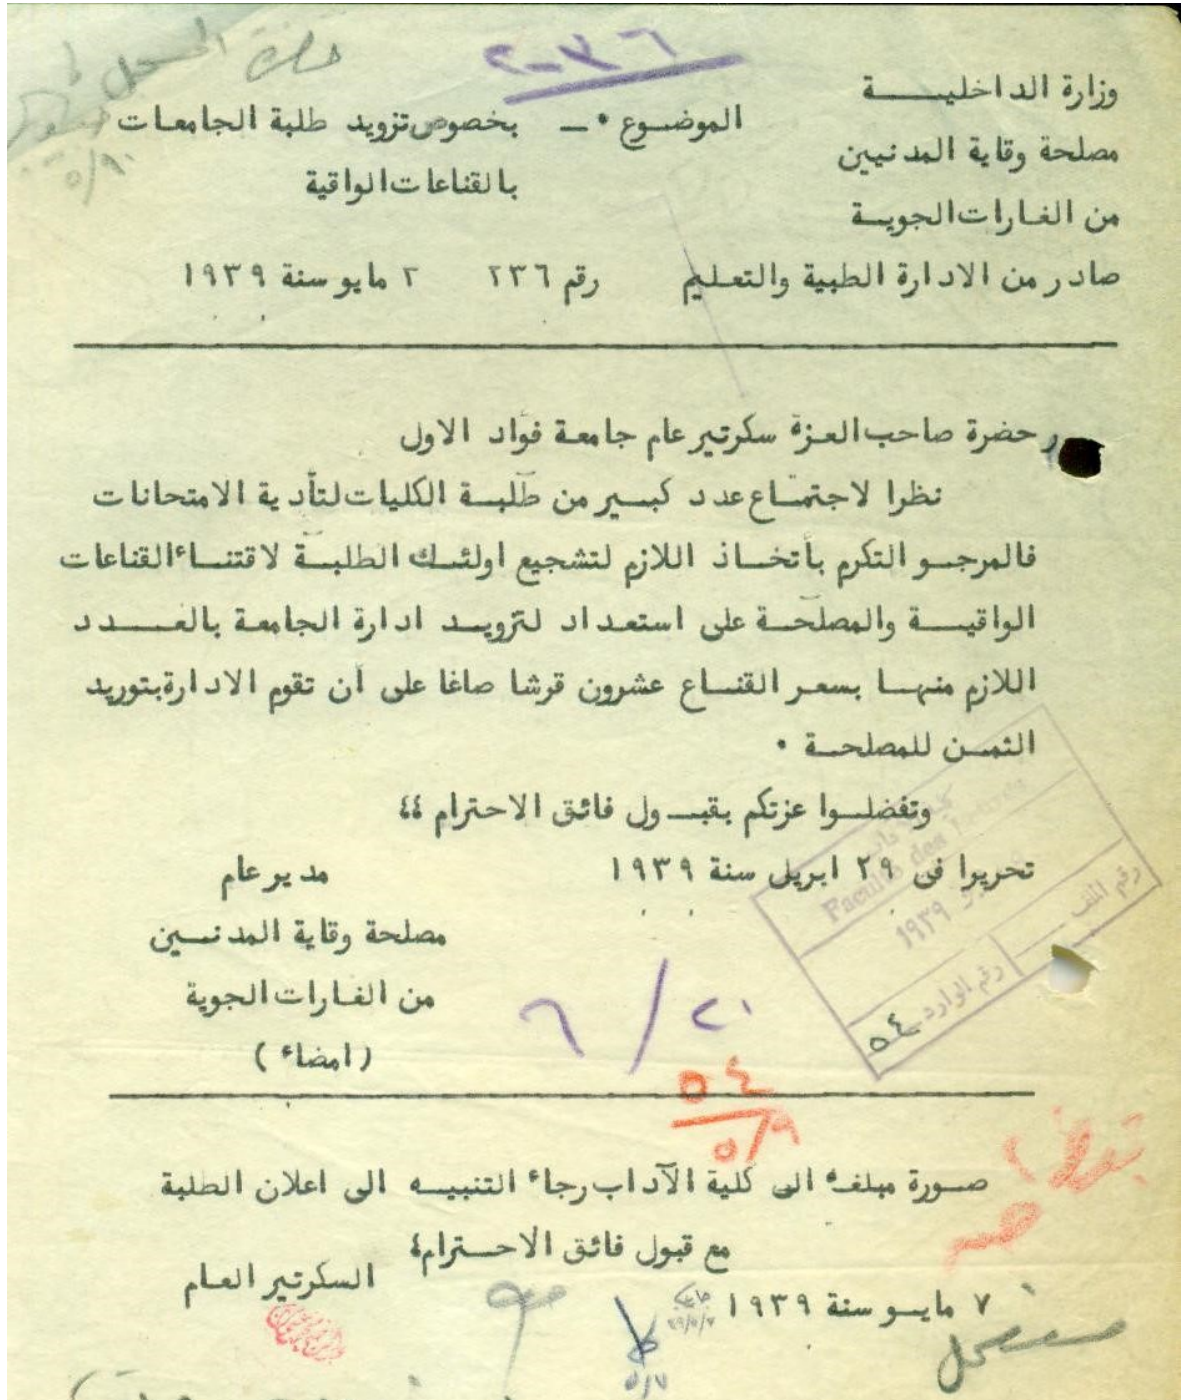 حضرة المسجل
٢-٣٦
وزارة الداخليـــــة
الموضــوع ٠ــ بخصوص تزويد طلبة الجامعـات
مصلحة وقاية المدنيين
بالقناعات الواقية
من الغـارات الجويــة
صادر من الادارة الطبية والتعليم رقم ٢٣٦ ٢ مايو سنة ١٩٣٩
حضرة صاحب العزة سكرتير عام جامعة فؤاد الاول
نظرا لاجتمـاع عدد كبـير من طلبـة الكليات لتأدية الامتحانات
فالمرجـو التكرم بأتخـاذ اللازم لتشجيع اولئـك الطلبـة لاقتنـاء القناعات
الواقيــة والمصلحـة على استعداد لتزويـد ادارة الجامعة بالعــدد
اللازم منهـا بسعـر القنـاع عشرون قرشا صاغا على أن تقوم الادارة بتوريد
الثمـن للمصلحـة ٠
وتفضلـوا عزتكم بقبـول فائق الاحترام ،،
تحريرا فى ٢٩ ابريل سنة ١٩٣٩
مدير عام
مصلحة وقاية المدنـيين
من الغـارات الجوية
( امضاء )
Faculté des
١٩٣٩
رقم الملف
رقم الوارد ٥٤
٢٠/٦
٥٤
٥/٩
صـورة مبلغه الى كلية الآداب رجاء التنبيـه الى اعلان الطلبة
مع قبول فائق الاحـترام،
السكرتير العـام
٧ مايـو سنة ١٩٣٩